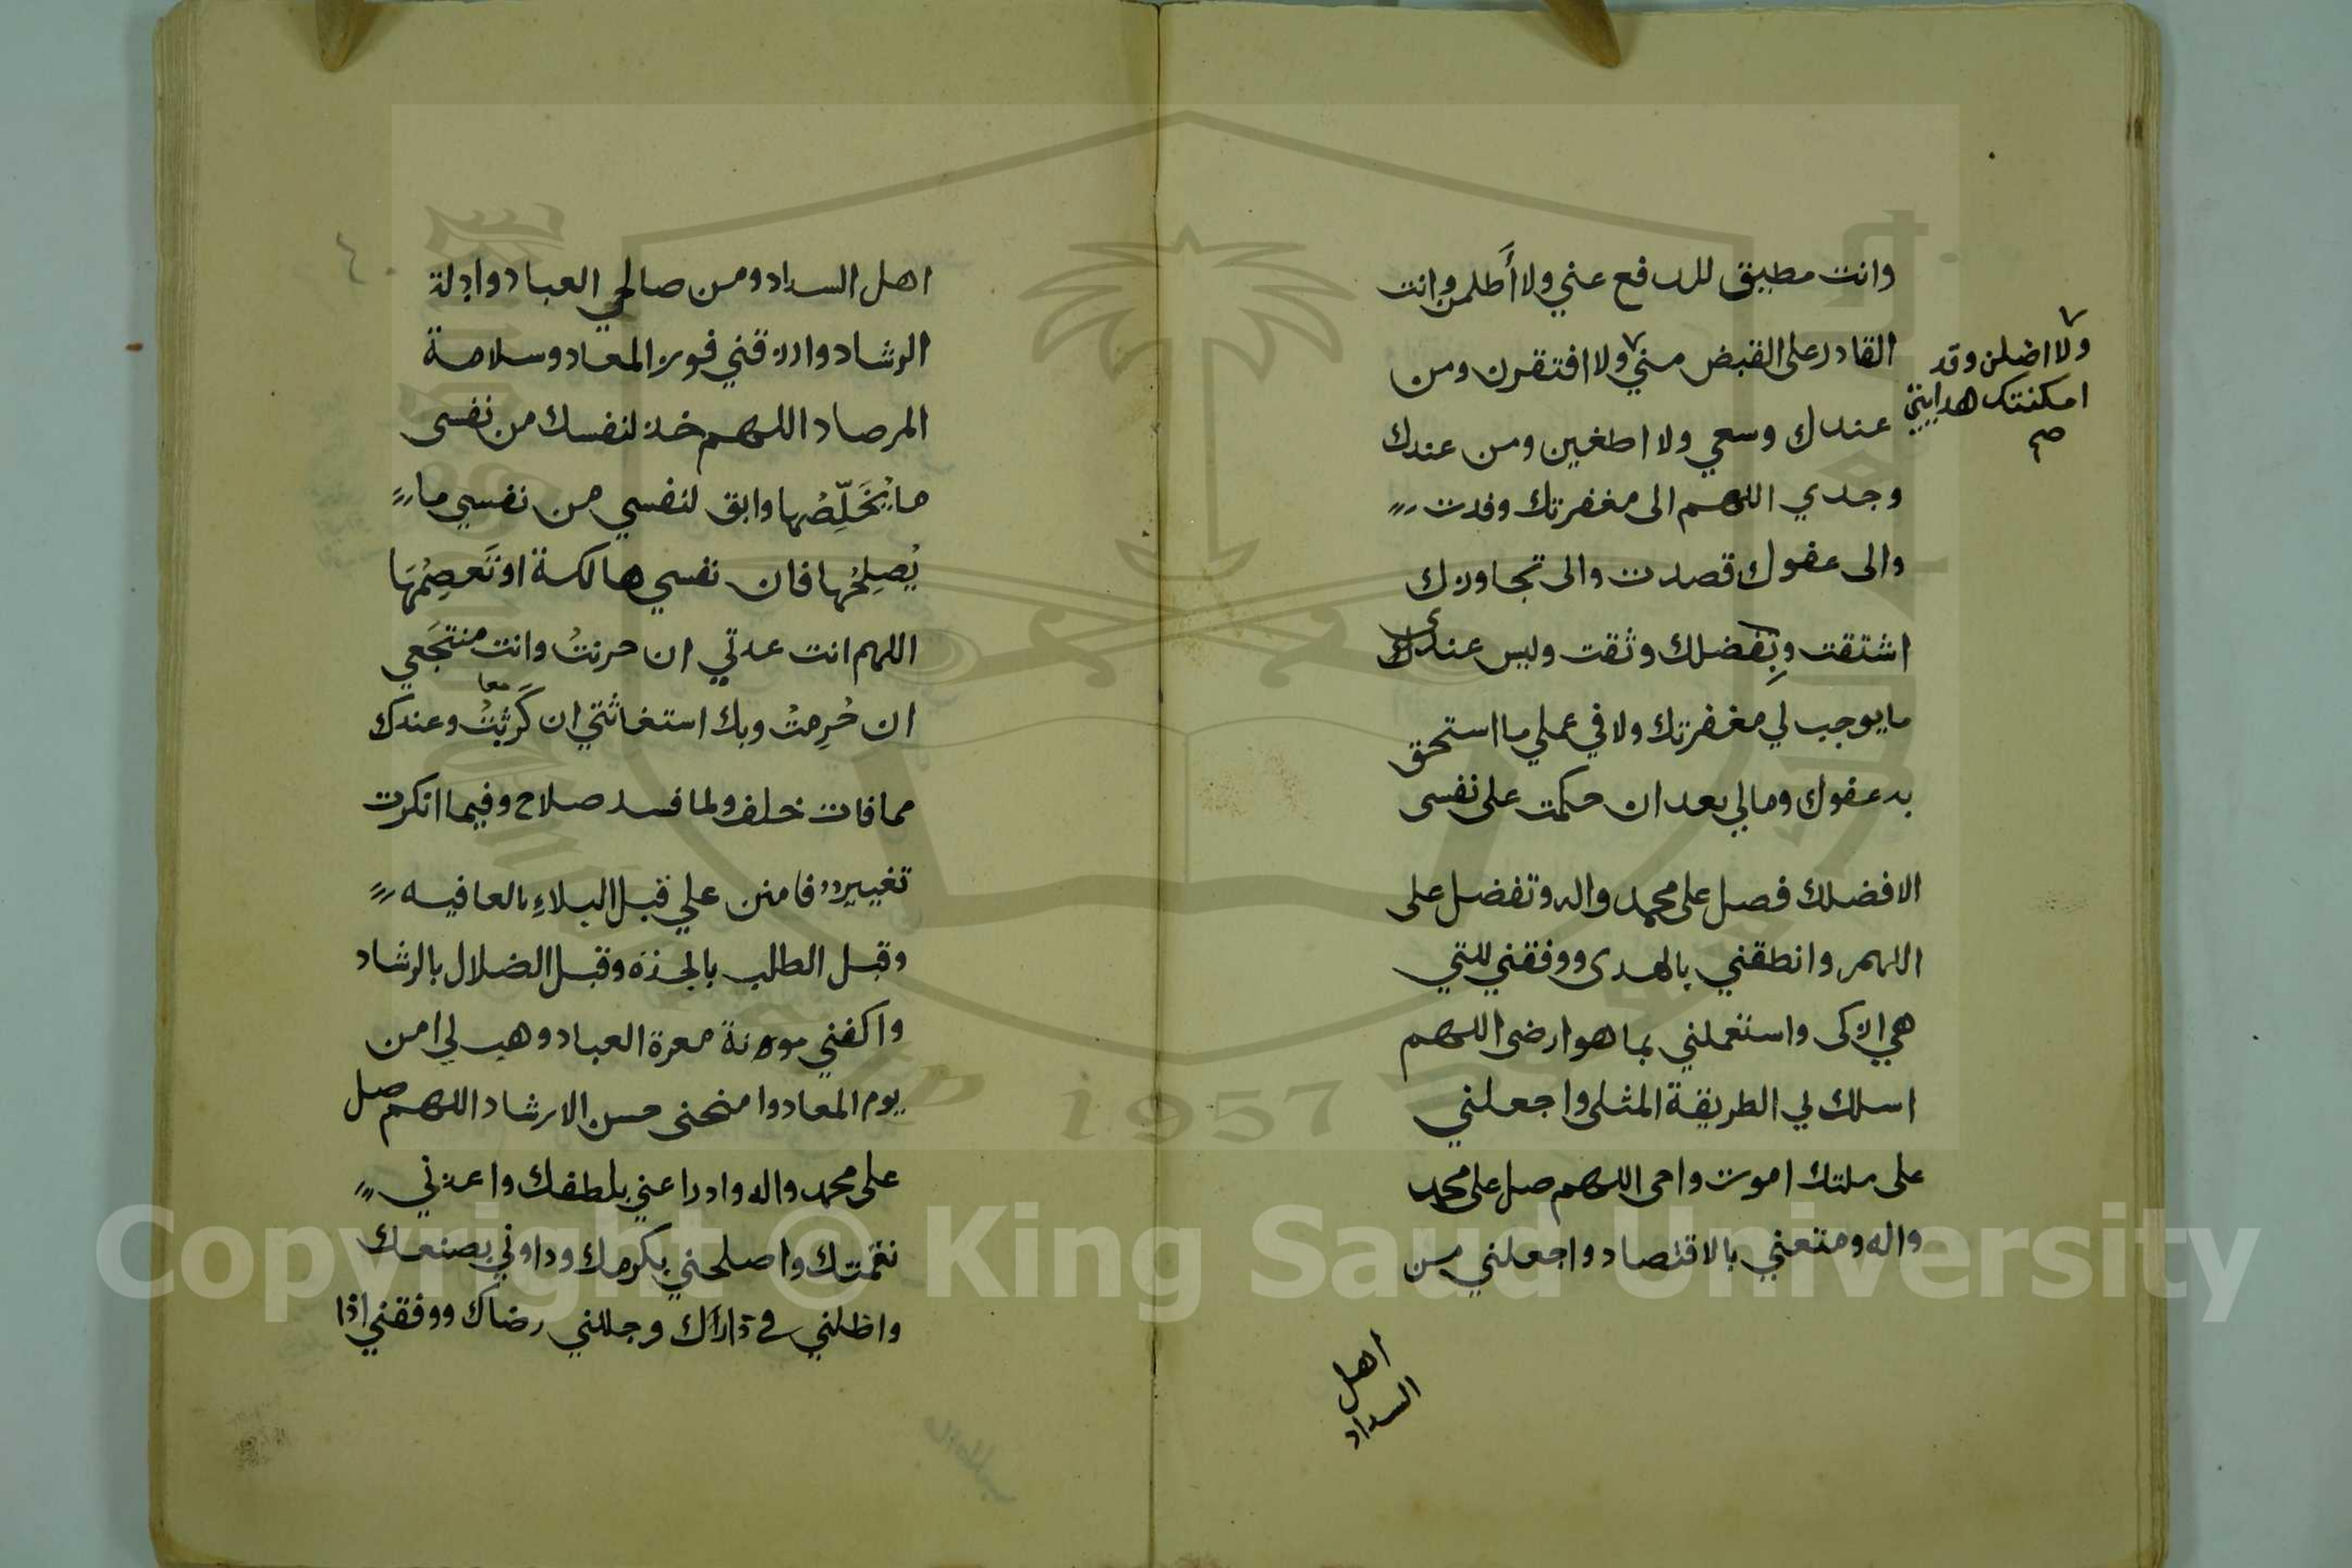 وانت مطيق للدفع عني ولا أَظلمن وانت
القادر على القبض مني ولا افتقرن ومن
ولا اضلن وقد
امكنتك هدايتي
صح
عندك وسعي ولا اطغين ومن عندك
وجدي اللهم الى مغفرتك وفدت
والى عفوك قصدت والى تجاوزك
اشتقت وبِفضلك وثقت وليس عندي
ما يوجب لي مغفرتك ولا في عملي ما استحق
به عفوك ومالي بعد ان حكمت على نفسى
الا فضلك فصل على محمد واله وتفضل على
اللهم وانطقني بالهدى ووفقني للتي
هي ازكى واستعملني بما هو ارضى اللهم
اسلك لي الطريقة المثلى واجعلني
على ملتك اموت واحى اللهم صل على محمد
واله ومتعني بالاقتصاد واجعلني من
اهل
السداد
اهل السداد ومن صالحي العباد وادلة
الرشاد وارزقني فوز المعاد وسلامة
المرصاد اللهم خذ لنفسك من نفسى
ما يُخَلِّصُها وابق لنفسي من نفسي ما
يُصلِحُها فان نفسي هالكة او تَعصِمُهَا
اللهم انت عدتي ان حزنتُ وانت منتجَعي
ان حُرِمتُ وبك استغاثتي ان كَرِثتُ وعندك
معا
مما فات خلف ولما فسد صلاح وفيما انكرت
تغيير فامنن علي قبل البلاءِ بالعافيه
وقبل الطلب بالجدَة وقبل الضلال بالرشاد
واكفني موءنة معرة العباد وهب لي امن
يوم المعاد وامنحنى حسن الارشاد اللهم صل
على محمد واله وادرا عني بلطفك واعذني
نقمتك واصلحني بكرمك وداوني بصنعك
واظلني في ذراك وجللني رضاك ووفقني اذا
Copyright © King Saud University
1957